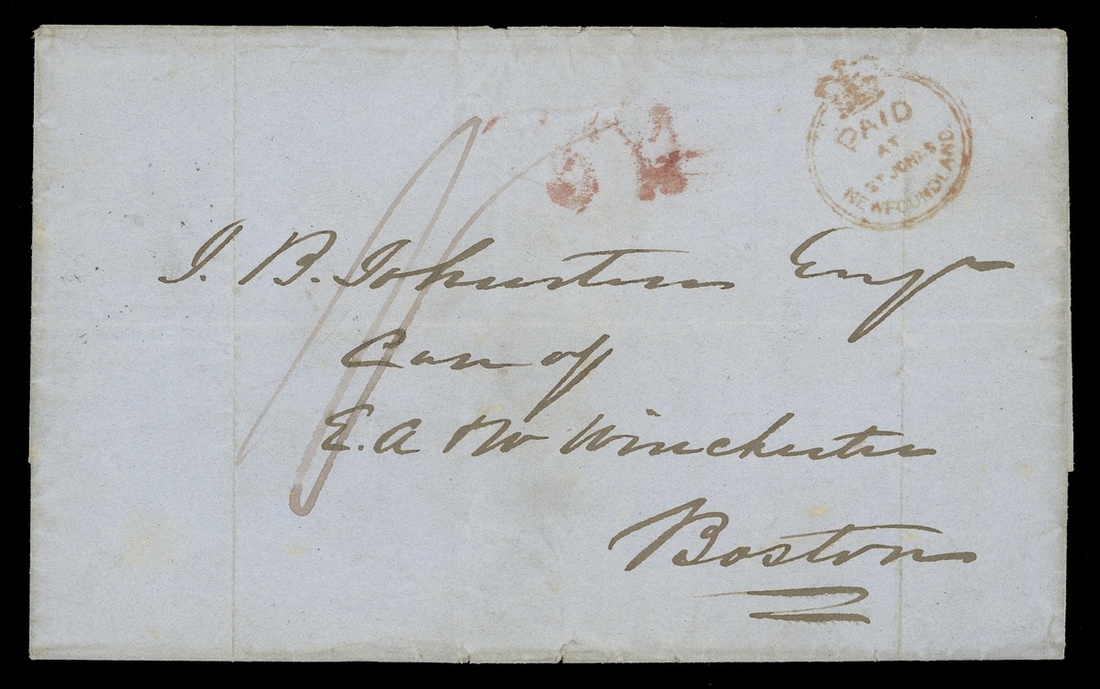 PAID
AT
ST JOHN'S
NEWFOUNDLAND
J. B. Johnston Esqr
Care of
E. A & W Winchester
Boston